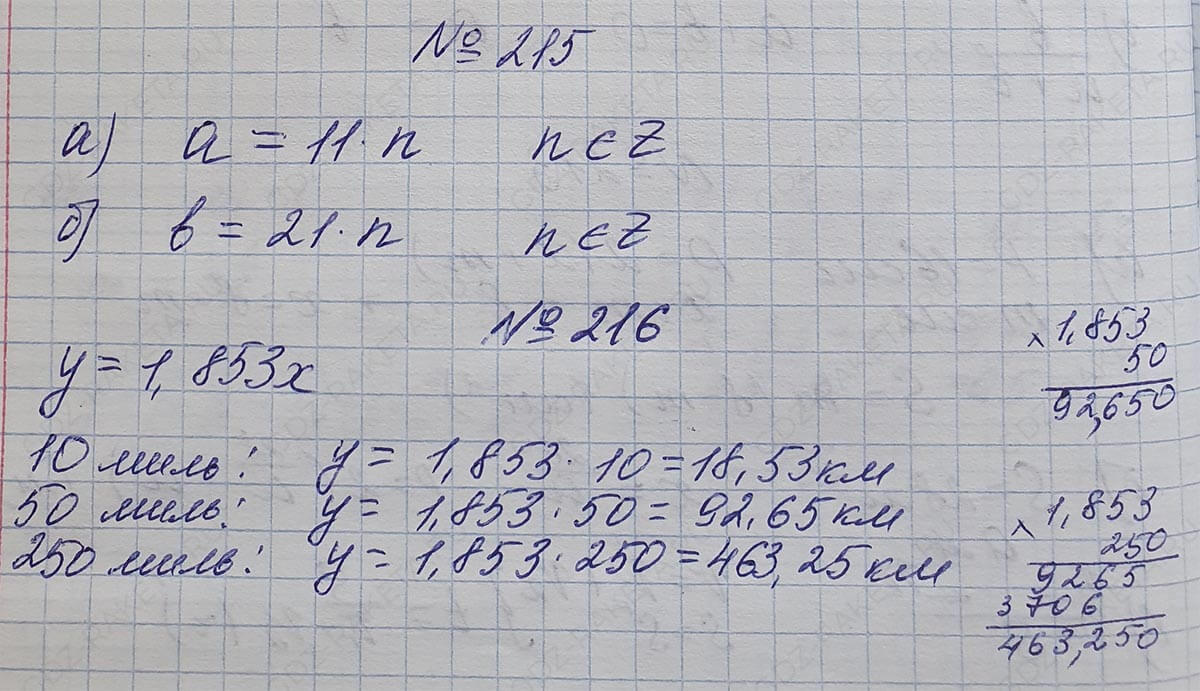 № 215
а) a = 11 · n n ∈ Z
б) b = 21 · n n ∈ Z
№ 216
y = 1,853x
10 миль: y = 1,853 · 10 = 18,53 км
50 миль: y = 1,853 · 50 = 92,65 км
250 миль: y = 1,853 · 250 = 463,25 км
× 1,853
50
92,650
× 1,853
250
9265
3706
463,250